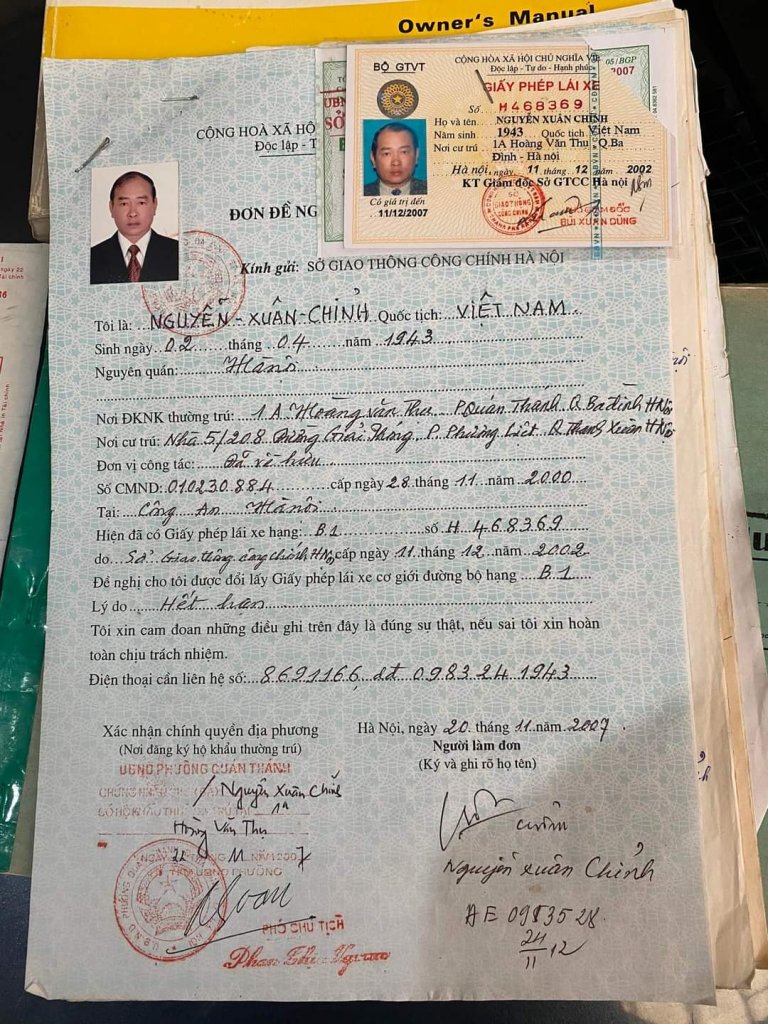 Owner's Manual
BỘ GTVT
CỘNG HÒA XÃ HỘI CHỦ NGHĨA VIỆ
Độc lập - Tự do - Hạnh phúc
05/BGP
2007
GIẤY PHÉP LÁI XE
Số H468369
Họ và tên NGUYỄN XUÂN CHỈNH
Năm sinh 1943 Quốc tịch Việt Nam
Nơi cư trú 1A Hoàng Văn Thụ Q.Ba
Đình - Hà nội
Hà nội, ngày 11 tháng 12 năm 2002
KT Giám đốc Sở GTCC Hà nội
Có giá trị đến
11/12/2007
BÙI XUÂN DŨNG
CỘNG HOÀ XÃ HỘ
Độc lập - T
ĐƠN ĐỀ NG
Kính gửi: SỞ GIAO THÔNG CÔNG CHÍNH HÀ NỘI
Tôi là: NGUYỄN - XUÂN - CHỈNH Quốc tịch: VIỆT NAM
Sinh ngày 02 tháng 04 năm 1943
Nguyên quán: Hà nội
Nơi ĐKNK thường trú: 1A Hoàng Văn Thụ P. Quán Thánh Q Ba đình H Nội
Nơi cư trú: Nhà 5/208 Đường Giải Phóng, P. Phương Liệt Q Thanh Xuân H Nội
Đơn vị công tác: Đã về hưu
Số CMND: 010230.884 cấp ngày 28 tháng 11 năm 2000
Tại: Công An Hà nội
Hiện đã có Giấy phép lái xe hạng: B.1 số H 468369
do Sở Giao thông công chính HN cấp ngày 11 tháng 12 năm 2002
Đề nghị cho tôi được đổi lấy Giấy phép lái xe cơ giới đường bộ hạng B1
Lý do Hết hạn
Tôi xin cam đoan những điều ghi trên đây là đúng sự thật, nếu sai tôi xin hoàn
toàn chịu trách nhiệm.
Điện thoại cần liên hệ số: 8691166, đt 0983 24 1943
Xác nhận chính quyền địa phương
(Nơi đăng ký hộ khẩu thường trú)
Hà Nội, ngày 20 tháng 11 năm 2007
Người làm đơn
(Ký và ghi rõ họ tên)
UBND PHƯỜNG QUÁN THÁNH
Nguyễn Xuân Chỉnh
1A
Hoàng Văn Thụ
NGÀY 22 THÁNG 11 NĂM 2007
TM UBND PHƯỜNG
PHÓ CHỦ TỊCH
Nguyễn Xuân Chỉnh
AE 0983528
24
11
12